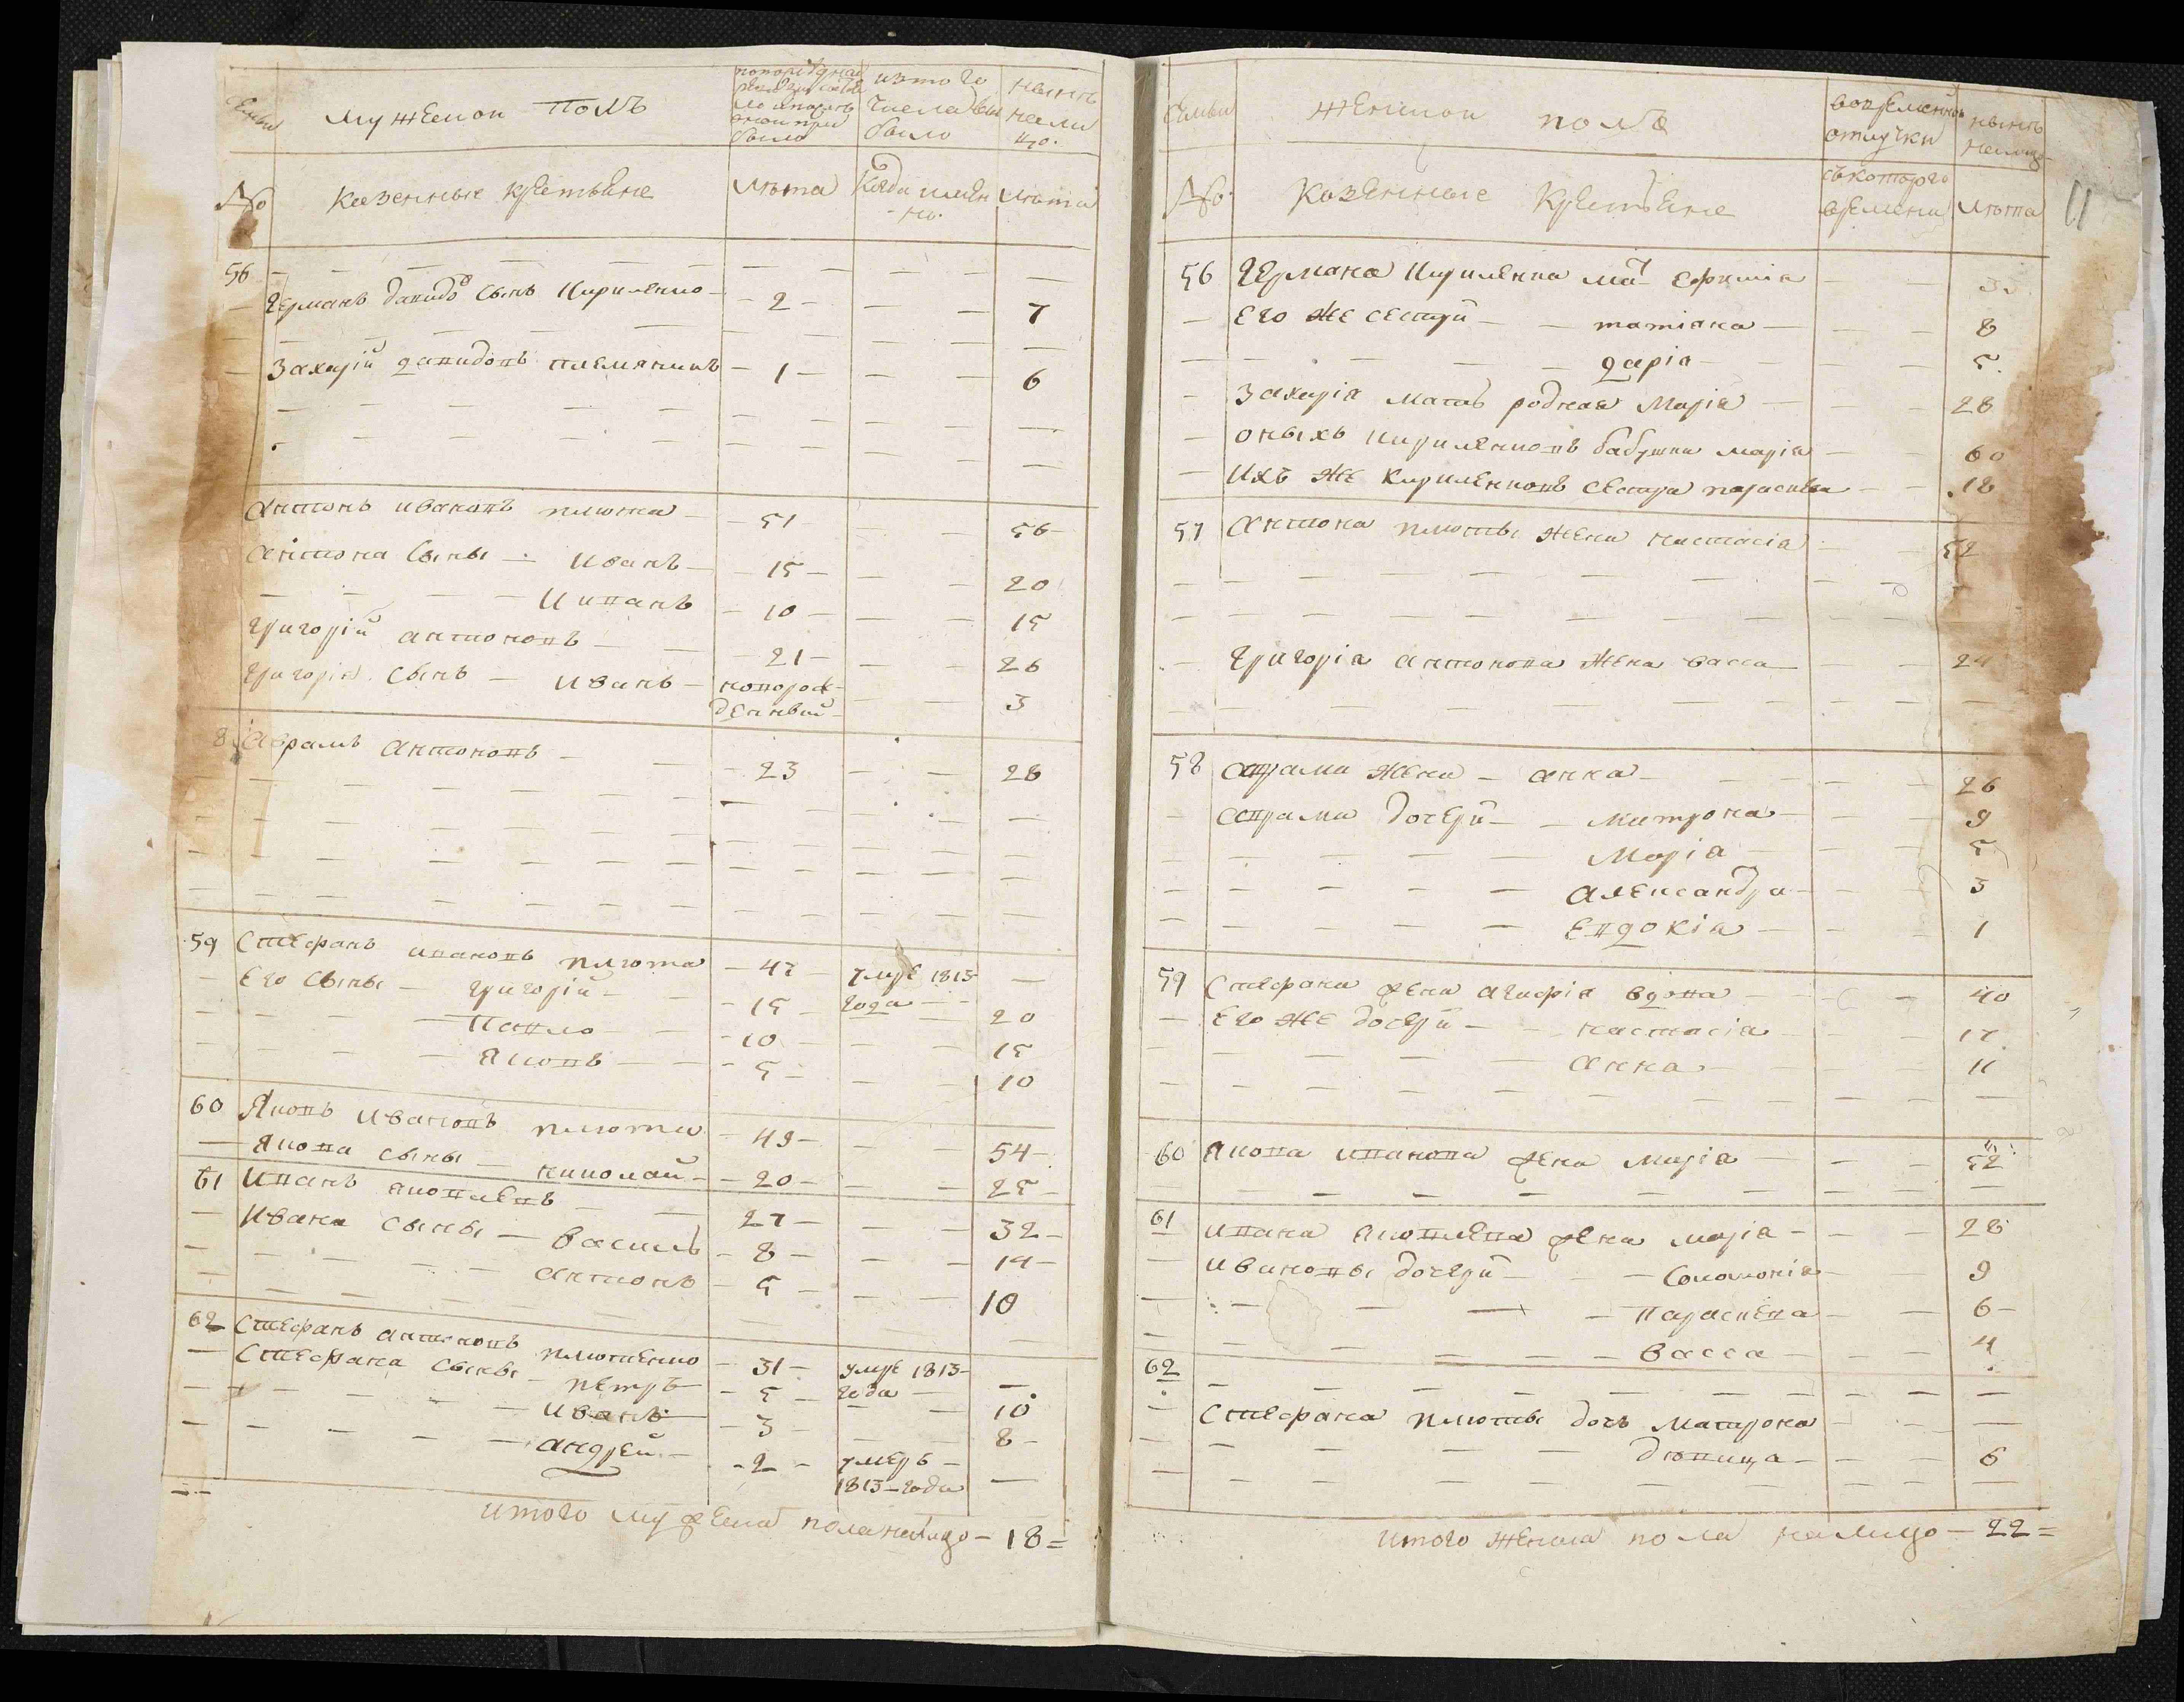 Семьи
мужескои полъ
изтого
числа вы
было
нынѣ
нали
цо.
№
казенные крестьяне
лѣта
Когда имян
но.
лѣта
56
Германъ данидо сынъ Кириленко 2 7
Захарій данидовъ племяникъ 1 6
Антонъ ивановъ плюта 51 56
антона сыны Иванъ 15 20
Ииванъ 10 15
григорій антоновъ 21 26
григорія сынъ Иванъ новорож 3
денный
8 Аврамъ антоновъ 23 28
59 Стефанъ ивановъ плюта 47 умре 1813
Его сыны григорій 15 года 20
Павло 10 15
Яковъ 5 10
60 Яковъ Ивановъ плюта 49 54
Якова сыны николай 20 25
61 Иванъ яковлевъ 27 32
Ивана сыны василь 8 14
антонъ 5 10
62 Стефанъ антоновъ плютенко 31 умре 1813
Стефана сыны петръ 5 года 10
Иванъ 3 8
андрей 2 умеръ
1813 года
итого мужеска пола налицо 18 =
11
Семьи
женскои полъ
вовременной
отлучки
нынѣ
налицо
№
Казенные Крестьяне
съкоторого
времени
лѣта
56 Германа Кириленка ма ефимія
Его же сестри татіяна 8
дарія 5
Захарія мать родная Марія 28
оныхъ кириленковъ бабушка марія 60
Ихъ же Кириленковъ сестра параскева 18
57 Антона плюты жена настасія 52
григорія антонова жена васса 24
58 Аврама жена анна 26
Аврама дочери матрона 9
Марія 5
александра 3
Евдокія 1
59 Стефана жена агафія вдова 40
Его же дочери настасія 17
Анна 11
60 Якова иванова жена марія 52
61 ивана яковлева жена марія 28
ивановы дочери Соломонія 9
Параскева 6
васса 4
62
Стефана плюты дочь матрона
дѣвица 6
итого женска пола налицо 22 =